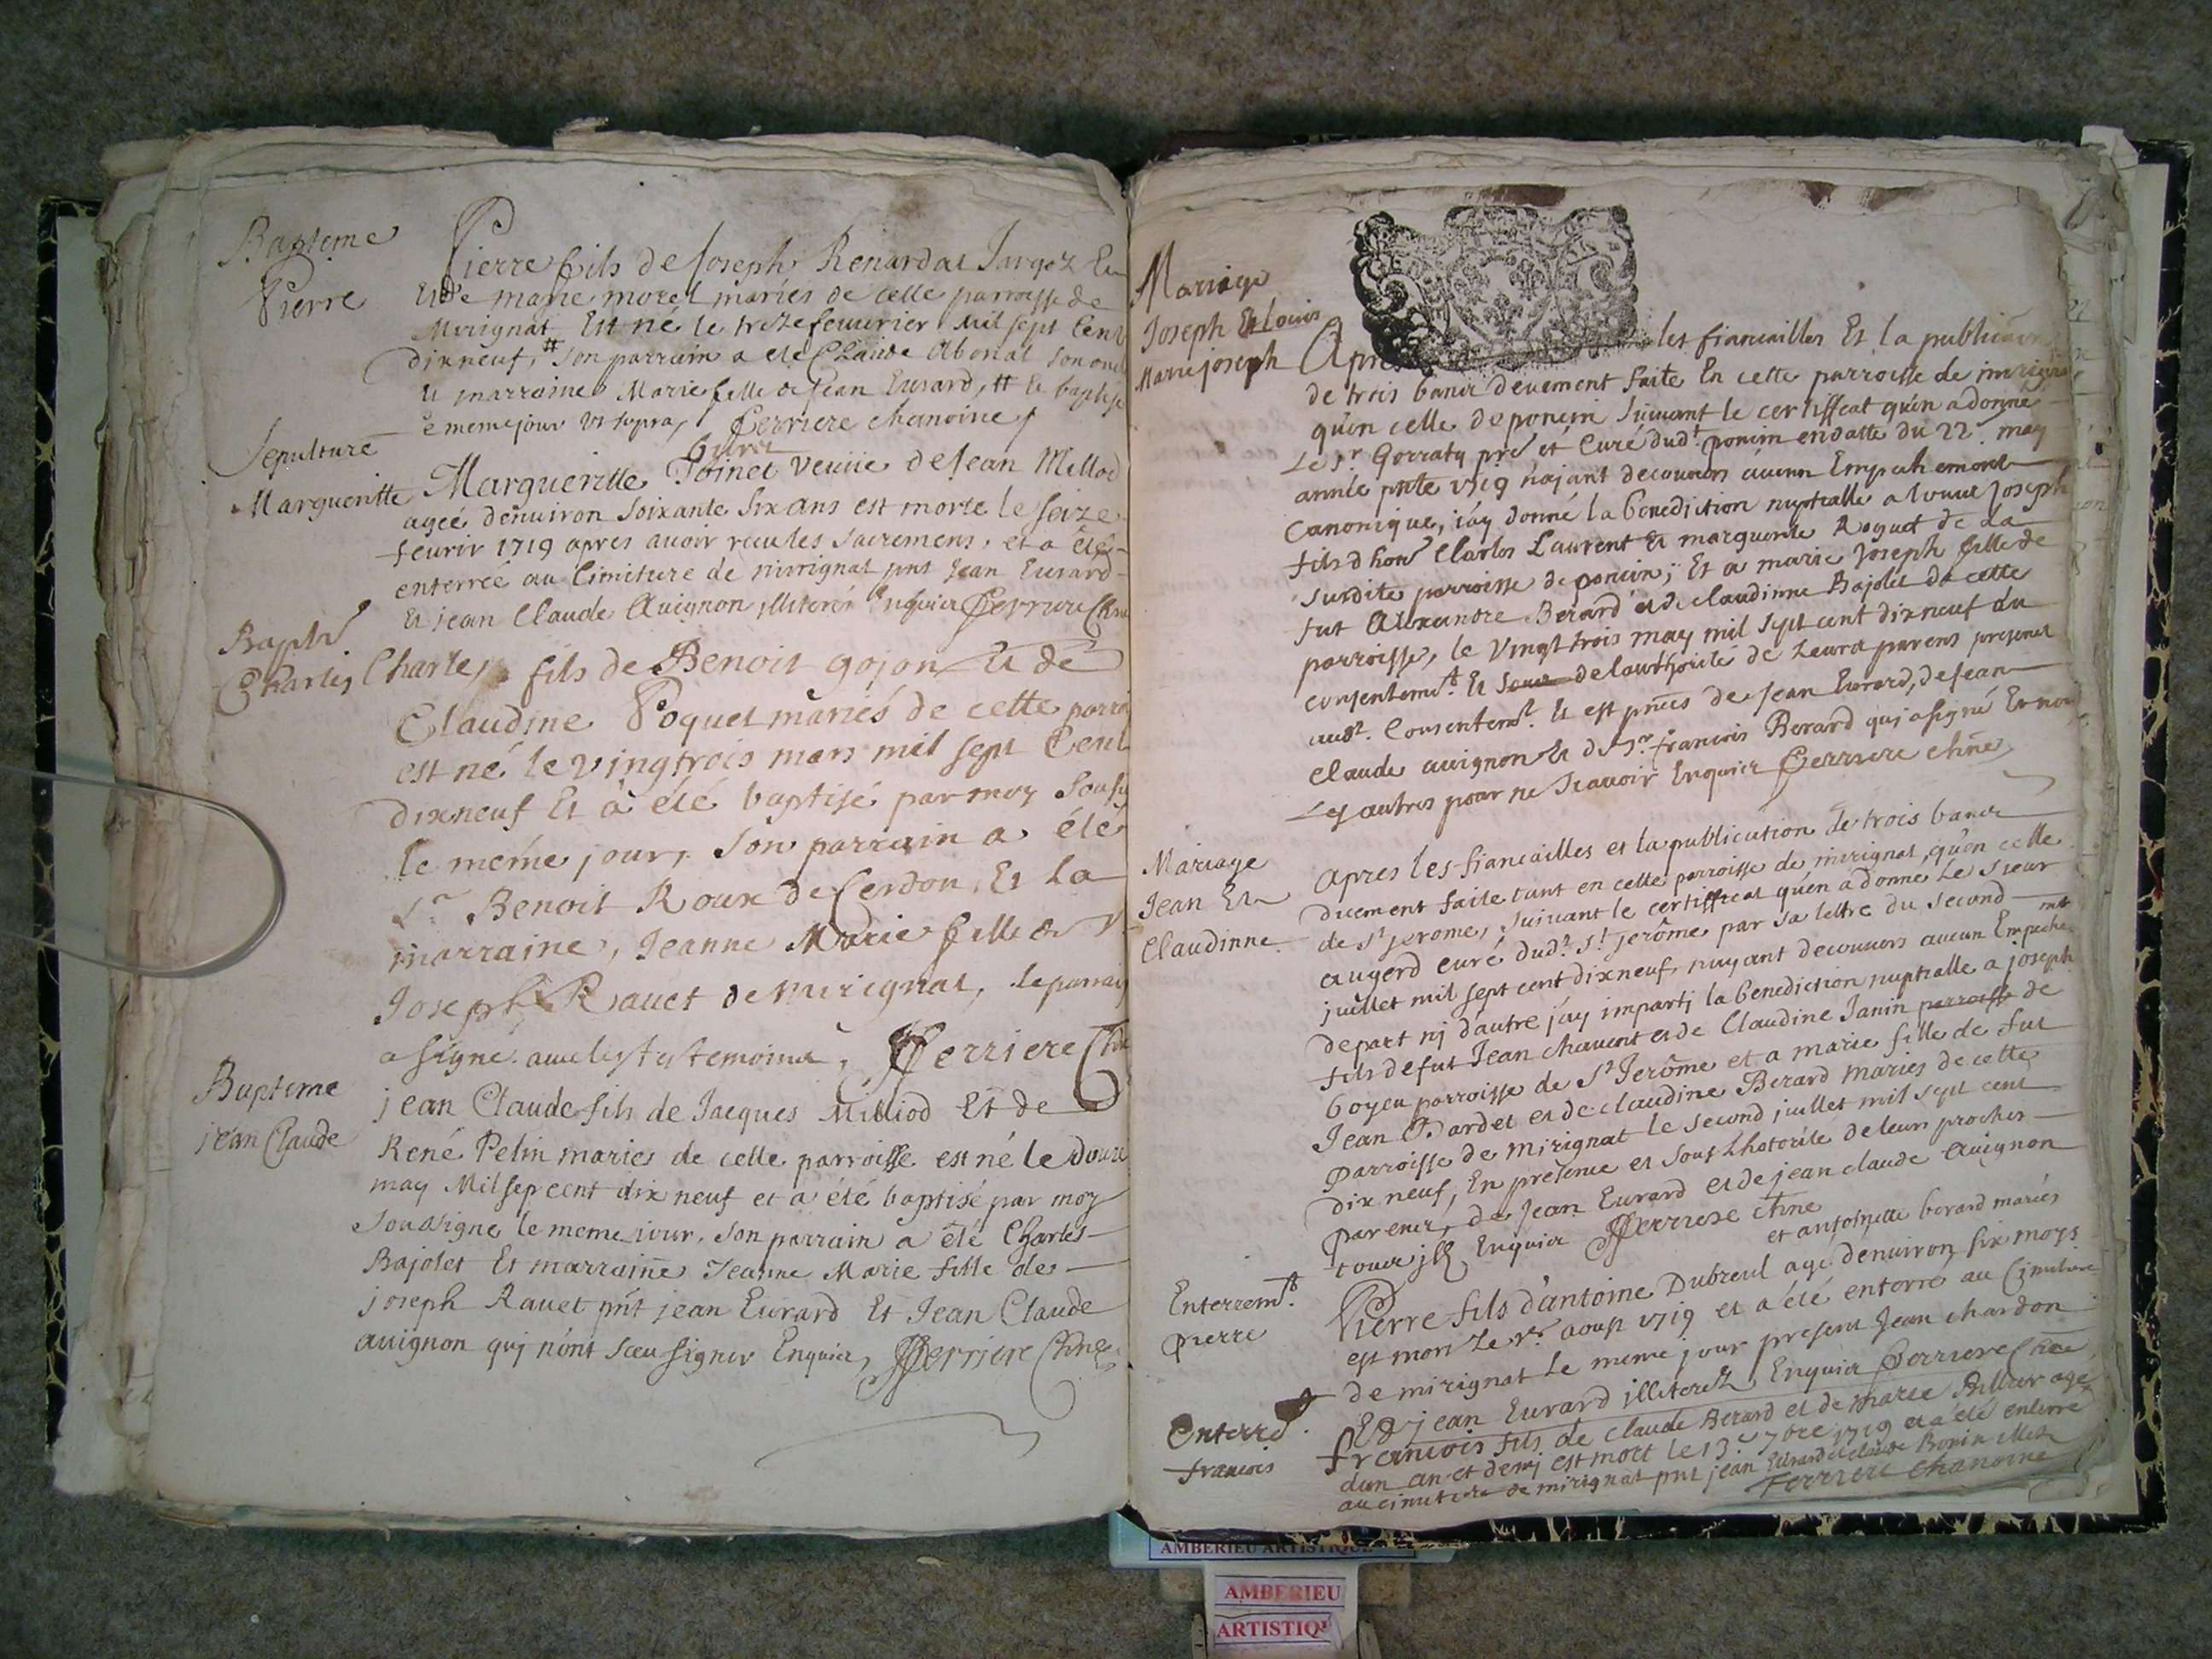 Bapteme
Pierre
Pierre fils de Joseph Renardat Jargez Eu
Et de marie morel mariés de cette parroisse de
Mirignat Est né le treze feuvrier Mil sept Cent
dixneuf, # son parrain a eté Claude Abonat son oncl
Et marraine Marie fille de Jean Eurard, # Et baptisé
e meme jour vt supra, Ferriere chanoine
Sepulture
Margueritte
Margueritte Poinet Veuüe de Jean Millod
ageé denuiron soixante six ans est morte le seize
feurir 1719 apres auoir receu les sacremens, et a été
enterreé au Cimiture de mirignat pnt Jean Eurard
Et jean Claude Auignon illiterés Enquier Ferriere Chne
Bapte
Charles
Charles fils de Benoit gojon Et de
Claudine Poquet mariés de cette parroi
est né le vingtrois mars mil sept Cent
dixneuf Et à été baptisé par moy Soussi
le meme jour, Son parrain a été
Sr Benoit Roux de Cerdon, Et la
marraine, Jeanne Marie fille de Sr
Joseph Rauet de mirignat, le parrain
a signé auec les temoins, Ferriere Chne
Bapteme
jean Claude
jean Claude fils de Jacques Milliod Et de
René Pelin maries de cette parroisse est né le douze
may Mil sepcent dix neuf et a été baptisé par moy
Sousigne le meme iour, son parrain a été Charles
Bajolet Et marrainne Jeanne Marie fille de
joseph Rauet pnt jean Eurard Et Jean Claude
auignon qui n'ont sceu signer Enquier, Ferriere Chne
Mariage
Joseph Et Louis
Marie joseph
Apres les fiancailles Et la publicaon
de trois bancs deuement faite En cette parroisse de mirignat
qu'en celle de poncin suiuant le certifficat qu'en a donné
Le Sr Gorraty pre et Curé dudt poncin en datte du 22 may
année pnte 1719 n'ajant decouuers aucun Empechement
Canonique, j'ay donné la benediction nuptialle a Louis Joseph
fils d'hone Charles Laurent Et marguerite Roguet de la
susdite parroisse de poncin; Et a marie Joseph fille de
fut Alexandre Berard et de claudinne Bajolet de cette
parroisse, le Vingt trois may mil sept cent dixneuf du
consentemt Et de l'authorité de Leurs parens presens
audt. Consentemt. Et est pnces de Jean Eurard, de Jean
Claude auignon Et de Sr francois Berard qui a signé Et non
Les autres pour ne Scauoir Enquier Ferriere chne
Mariage
Jean Et
Claudinne
Apres les fiancailles et la publication de trois bancs
duement faite tant en cette parroisse de mirignat, qu'en celle
de St jerome, suiuant le certifficat qu'en a donné Le Sieur
augerd curé dudt St jerôme par sa lettre du second
juillet mil sept cent dixneuf, n'ayant decouuers aucun Empeche mt
depart nj d'autre j'ay impartj la benediction nuptialle a joseph
fils de fut Jean chauent et de Claudine Janin parroisse de
boyeu parroisse de St Jerôme et a marie fille de fut
Jean Bardet et de claudine Berard mariés de cette
parroisse de Mirignat le second juillet mil sept cent
dix neuf, En presence et sous l'hotorité de leurs proches
parens, de Jean Eurard et de jean claude Auignon
tous ill Enquier Ferriere chne
Enterremt.
pierre
et antoinette berard mariés
Pierre fils d'antoine Dubreul age denuiron six moys
est mort Le 1er aoust 1719 et a été enterré au Cimitiere
de mirignat Le meme jour present Jean chardon
Et jean Eurard illiterez Enquier Ferriere Chne
Enterre
francois
francois fils de Claude Berard et de marie agé
dun an et demj est mort le 13e 7bre 1719 et a été enterré
au cimitiere de mirignat pnt jean Eurard et claude Bonin illitr
Ferriere chanoine
AMBERIEU ARTISTIQUE
AMBERIEU
ARTISTIQU